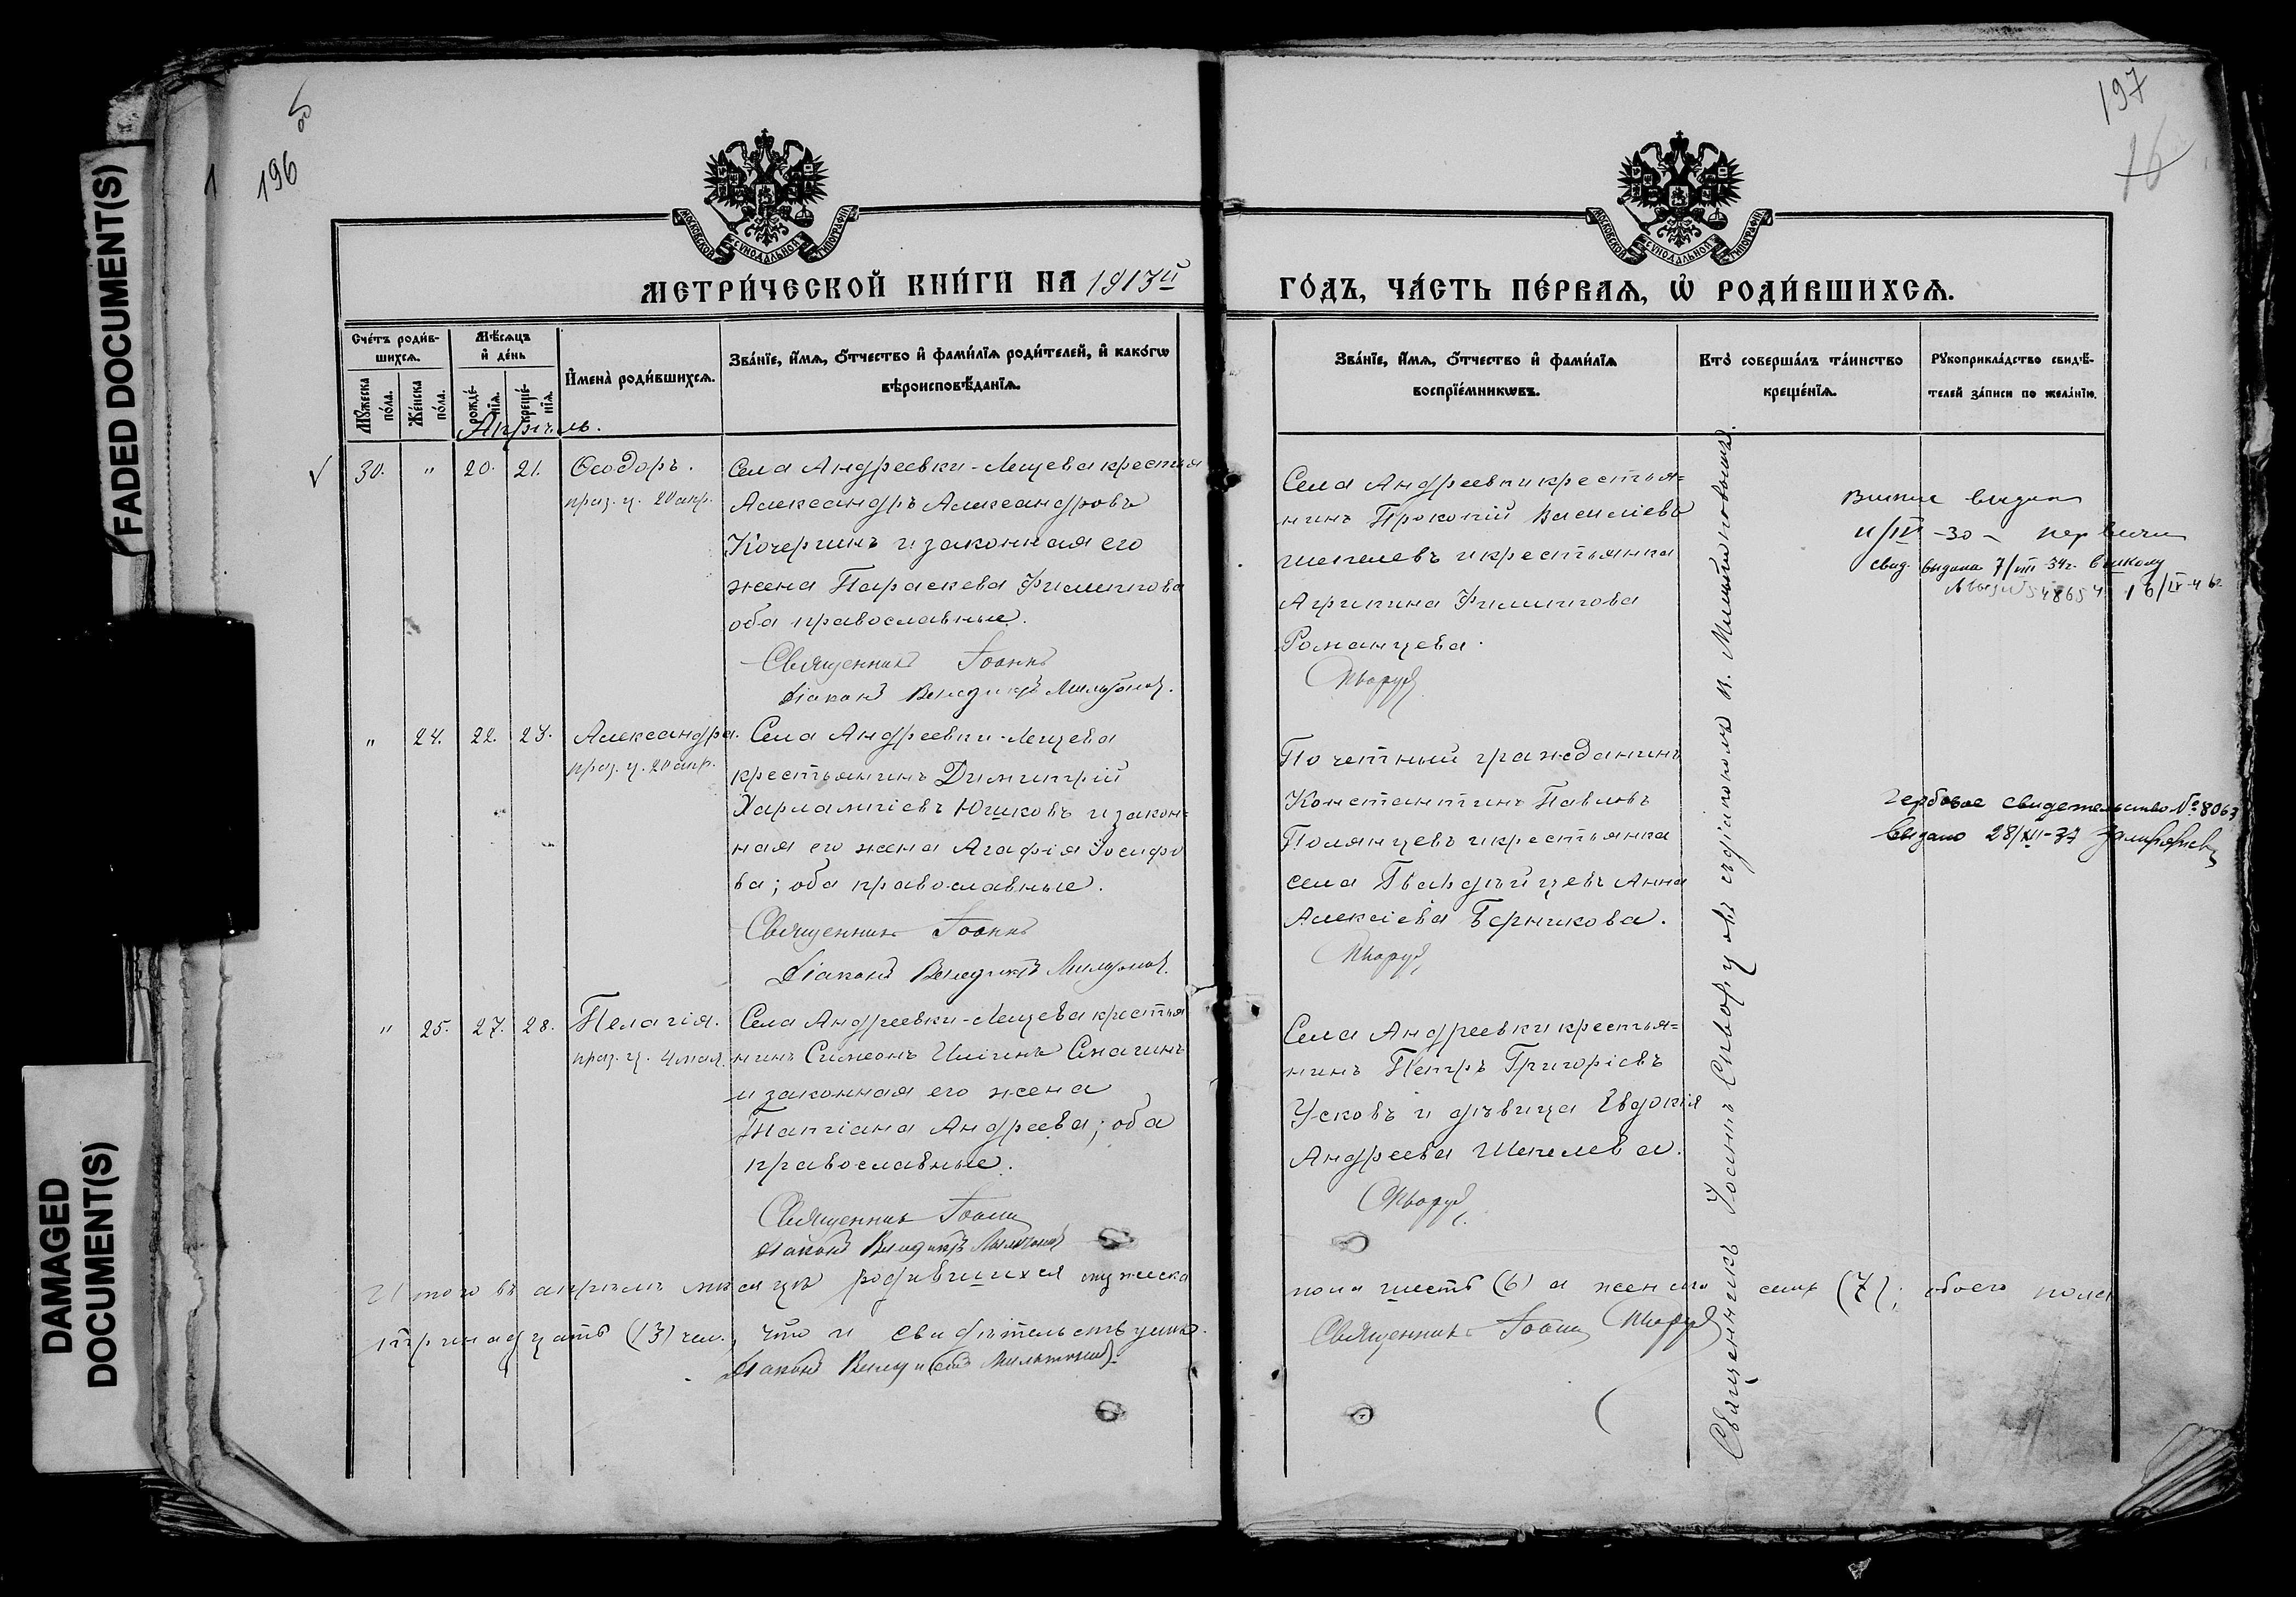 FADED DOCUMENT(S)
DAMAGED
DOCUMENT(S)
196
об
197
16
МОСКОВСКОЙ СѴНОДАЛЬНОЙ ТИПОГРАФІИ
МОСКОВСКОЙ СѴНОДАЛЬНОЙ ТИПОГРАФІИ
МЕТРИ́ЧЕСКОЙ КНИ́ГИ НА 1913й
ГО́ДЪ, ЧА́СТЬ ПЕ́РВАЯ, Ѡ҆ РОДИ́ВШИХСЯ.
Сче́тъ роди́в-
шихся.
Мꙋ́жеска
по́ла.
Же́нска
по́ла.
Мѣ́сяцъ
и҆ де́нь
рожде́-
нїя.
креще́-
нїя.
И҆мена̀ роди́вшихся.
Зва́нїе, и҆́мя, ѻ҆́тчество и҆ фами́лїя роди́телей, и҆ како́гѡ
вѣроисповѣ́данїя.
Зва́нїе, и҆́мя, ѻ҆́тчество и҆ фами́лїя
воспрїе́мникѡвъ.
Кто̀ соверша́лъ та́инство
креще́нїя.
Рꙋкоприкла́дство свидѣ́-
телей за́писи по жела́нїю.
Апрѣль.
30. " 20. 21. Ѳеодоръ.
праз. ч. 20 апр.
Села Андреевки-Лещева крестья
Александръ Александровъ
Кочергинъ и законная его
жена Параскева Филиппова
оба православные.
Священникъ Іоаннъ
Діаконъ Венедиктъ Мильтонов.
Села Андреевки крестья=
нинъ Прокопій Василіевъ
Шепелевъ и крестьянка
Агрипина Филиппова
Романцева.
Скворцов
выдана
11/IV -30 -
свид. выдано 7/VIII-34г. в школу
16/IX-46г.
" 24. 22. 23. Александра.
праз. ч. 20 апр.
Села Андреевки-Лещева
крестьянинъ Димитрій
Харлампіевъ Юшковъ и закон=
ная его жена Агафія Іосифо
ва; оба православные.
Священникъ Іоаннъ
Діаконъ Венедиктъ Мильтонов.
Почетный гражданинъ
Константинъ Павловъ
Полянцевъ и крестьянка
села Анна
Алексіева Берникова.
Скворцов
Гербовое свидетельство № 8063
выдано 28/XII-37
" 25. 27. 28. Пелагія.
праз. ч. 4 мая.
Села Андреевки-Лещева крестья
нинъ Симеонъ Иліинъ Смагинъ
и законная его жена
Татіана Андреева; оба
православные.
Священникъ Іоаннъ
Діаконъ Венедиктъ Мильтонов
Села Андреевки крестья=
нинъ Петръ Григоріевъ
Усковъ и дѣвица Евдокія
Андреева Шепелева.
Скворцов.
Священникъ Іоаннъ Скворцовъ съ діакономъ В. Мильтоновымъ.
Итого въ апрѣлѣ мѣсяцѣ родившихся мужеска
пола шесть (6) а женска семь (7); обоего пола
тринадцать (13) чел., что и свидѣтельствуемъ.
Священникъ Іоаннъ Скворцов
Діаконъ Венедиктъ Мильтонов.